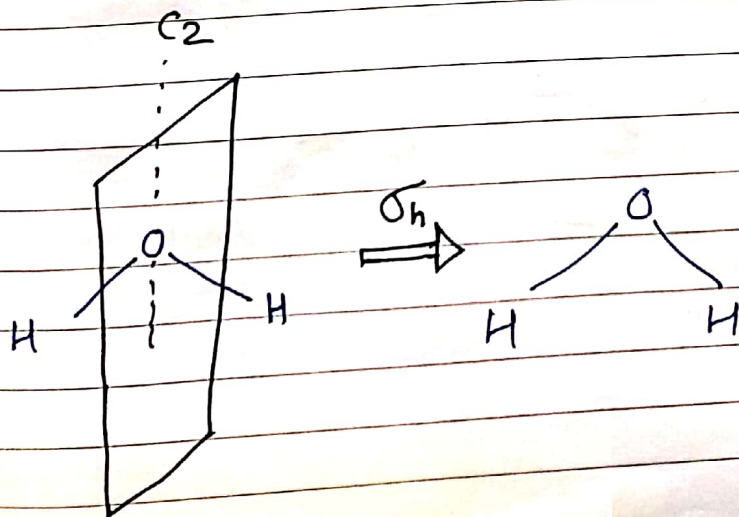 C2
O
H H
σh
O
H H